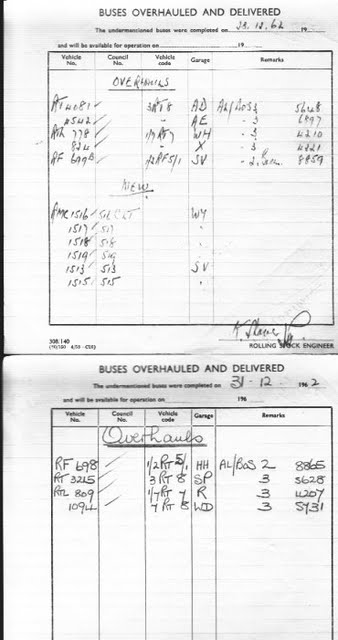 BUSES OVERHAULED AND DELIVERED
The undermentioned buses were completed on 28.12.62 19
and will be available for operation on 19
Vehicle No. Council No. Vehicle code Garage Remarks
OVERHAULS
RT 4081 3RT8 AD AL/BOS 3 5628
4542 " AE - 3 6897
RTL 778 1/7 RT 7 WH - 3 4210
824 " X - 3 4221
RF 699B 1/2 RF5/1 SV 8859
NEW
RMC 1516 WY
1517 517 "
1518 518 "
1519 519 "
1513 513 SV
1515 515 "
ROLLING STOCK ENGINEER
308.140
BUSES OVERHAULED AND DELIVERED
The undermentioned buses were completed on 31-12- 1962
and will be available for operation on 196
Vehicle No. Council No. Vehicle code Garage Remarks
Overhauls
RF 698 1/2 RT 5/1 HH AL/BOS 2 8865
RT 3215 3 RT 8 SP 3 5628
RTL 809 1/7 RT 7 R 3 4207
1094 7 RT 8 WD 3 5731